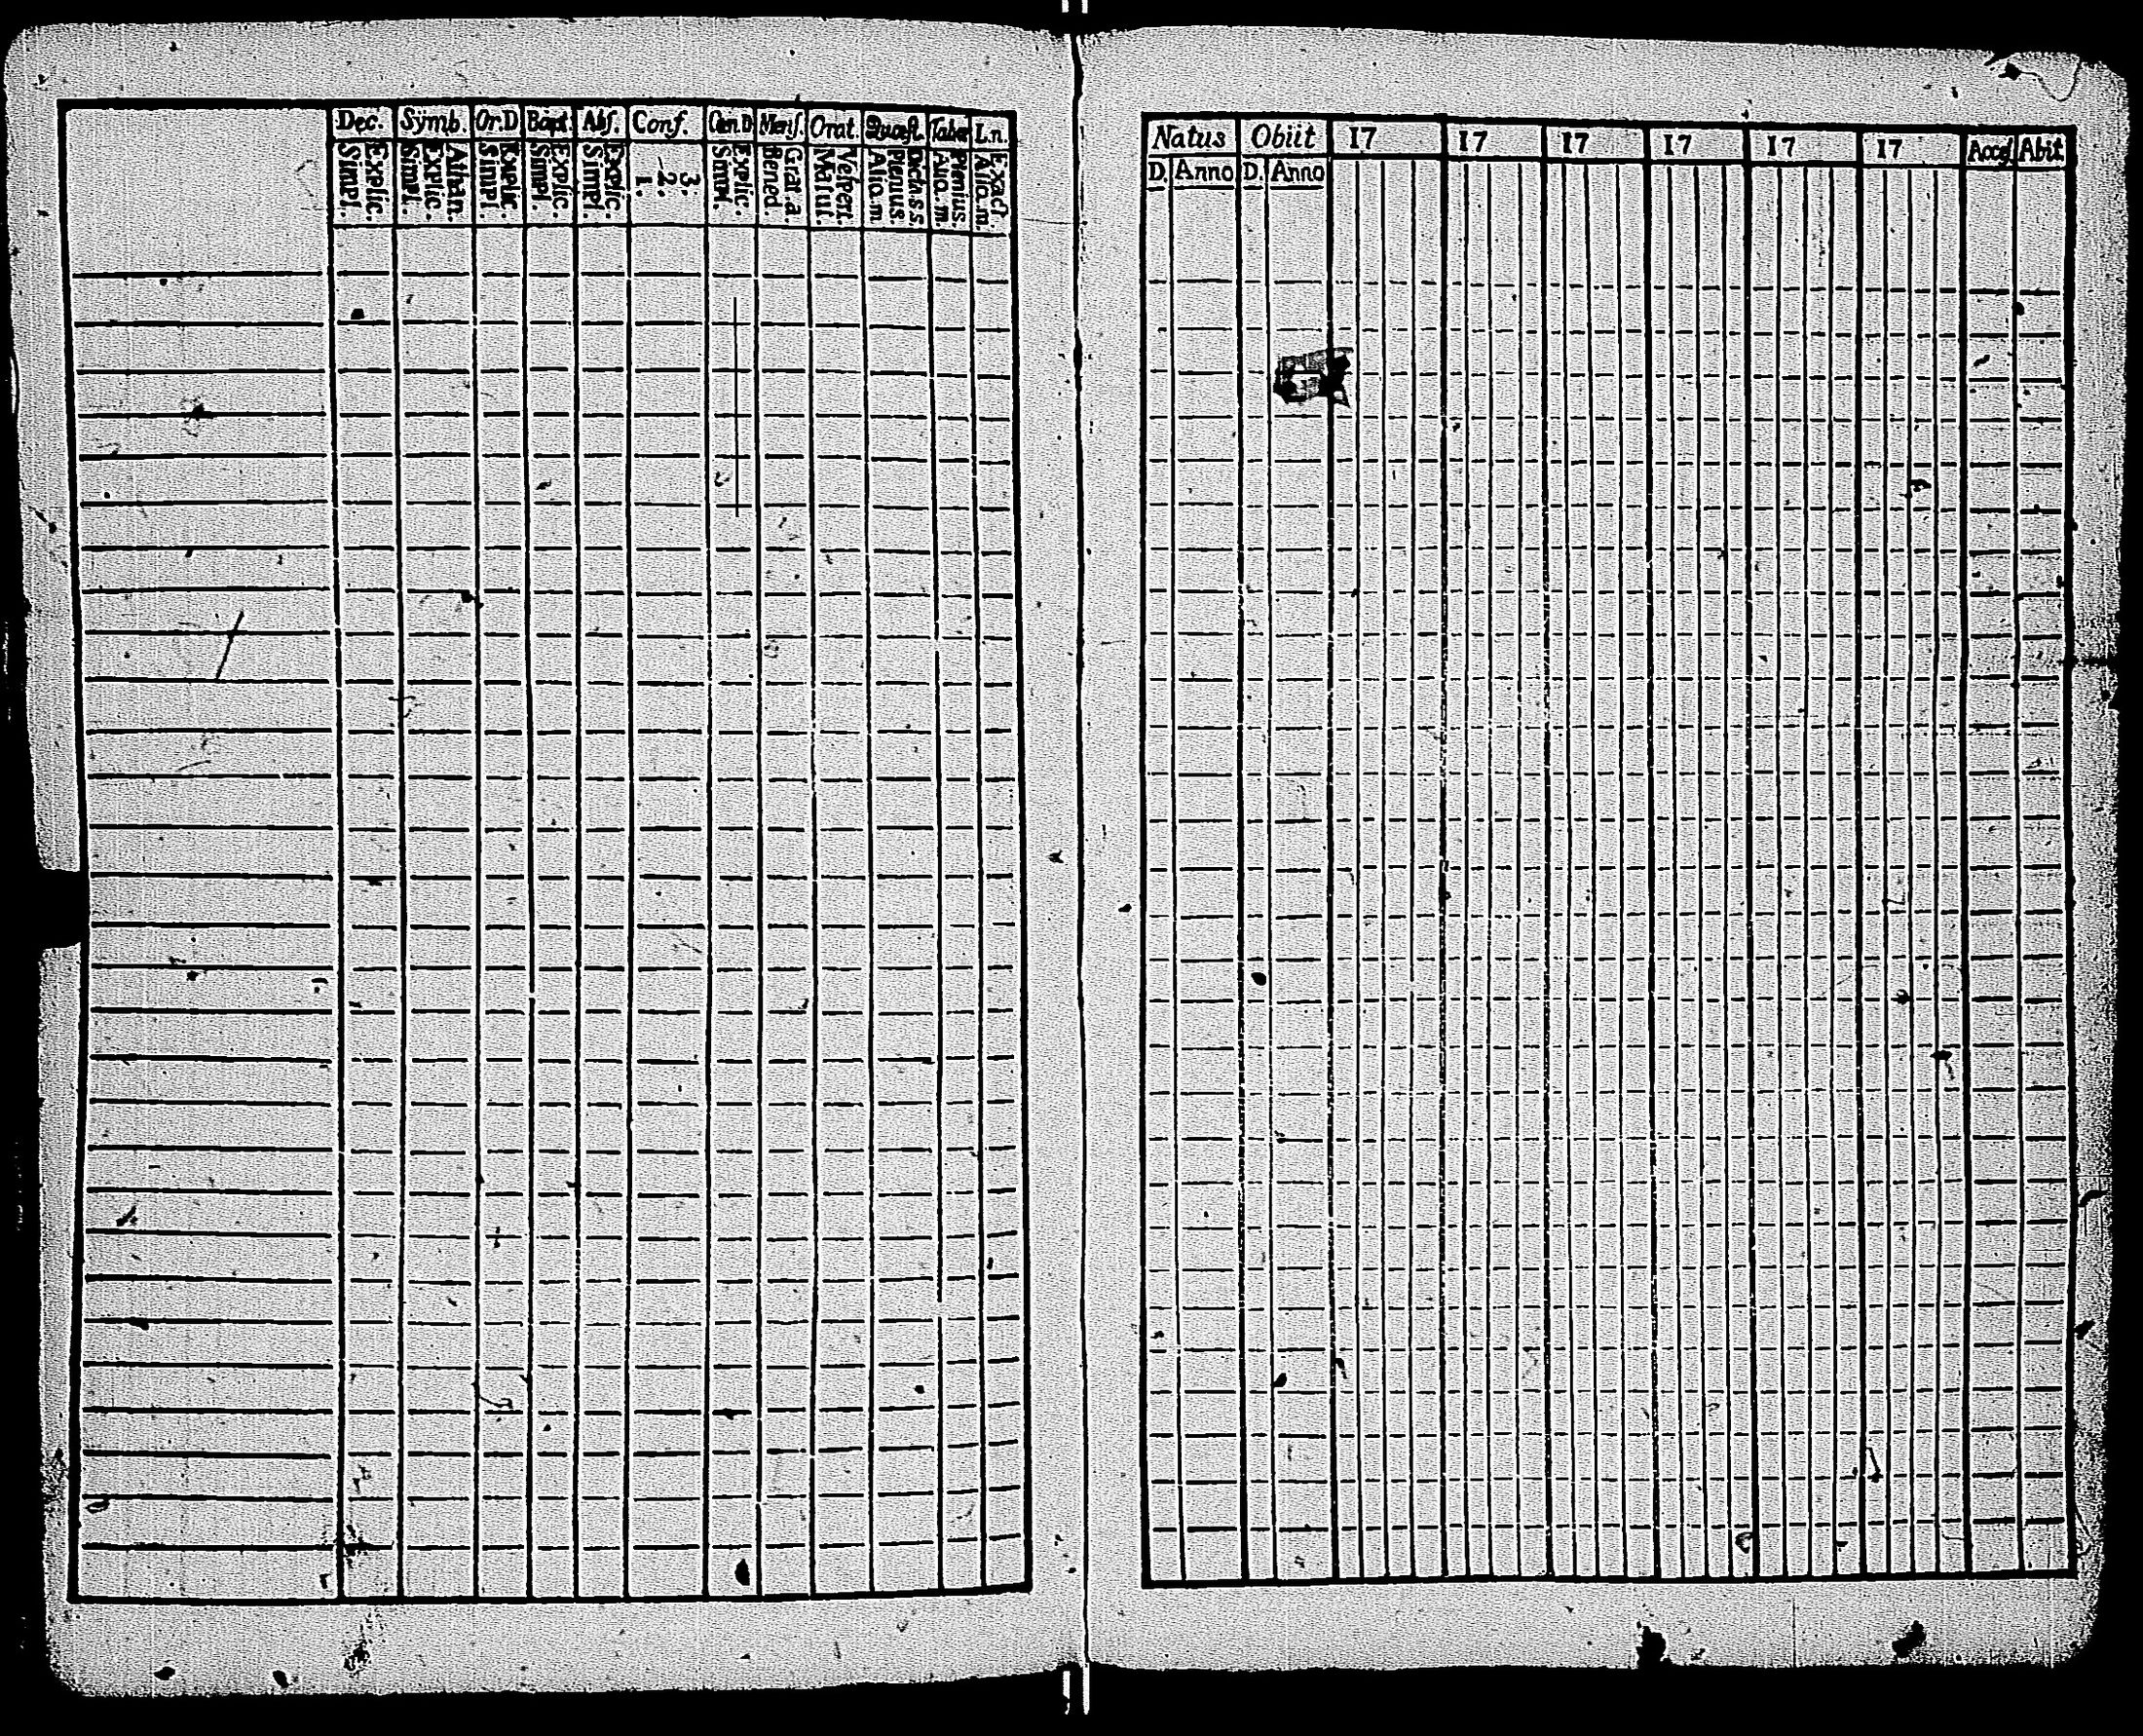 Dec. Symb. Or.D Bapt. Abſ. Conf. Cœn.D Menſ. Orat. Quæſt. Tabæ I.n.
Simpl. Explic. Simpl. Explic. Athan. Simpl. Explic. Simpl. Explic. Simpl. Explic. 1. 2. 3. Simpl. Explic. Bened. Grat.a. Matut. Veſpert. Alio.m. Plenius. Dictis.ss. Aliq.m. Plenius. Aliq.m. Exact.
Natus Obiit 17 17 17 17 17 17 Acceſ. Abit
D. Anno D. Anno